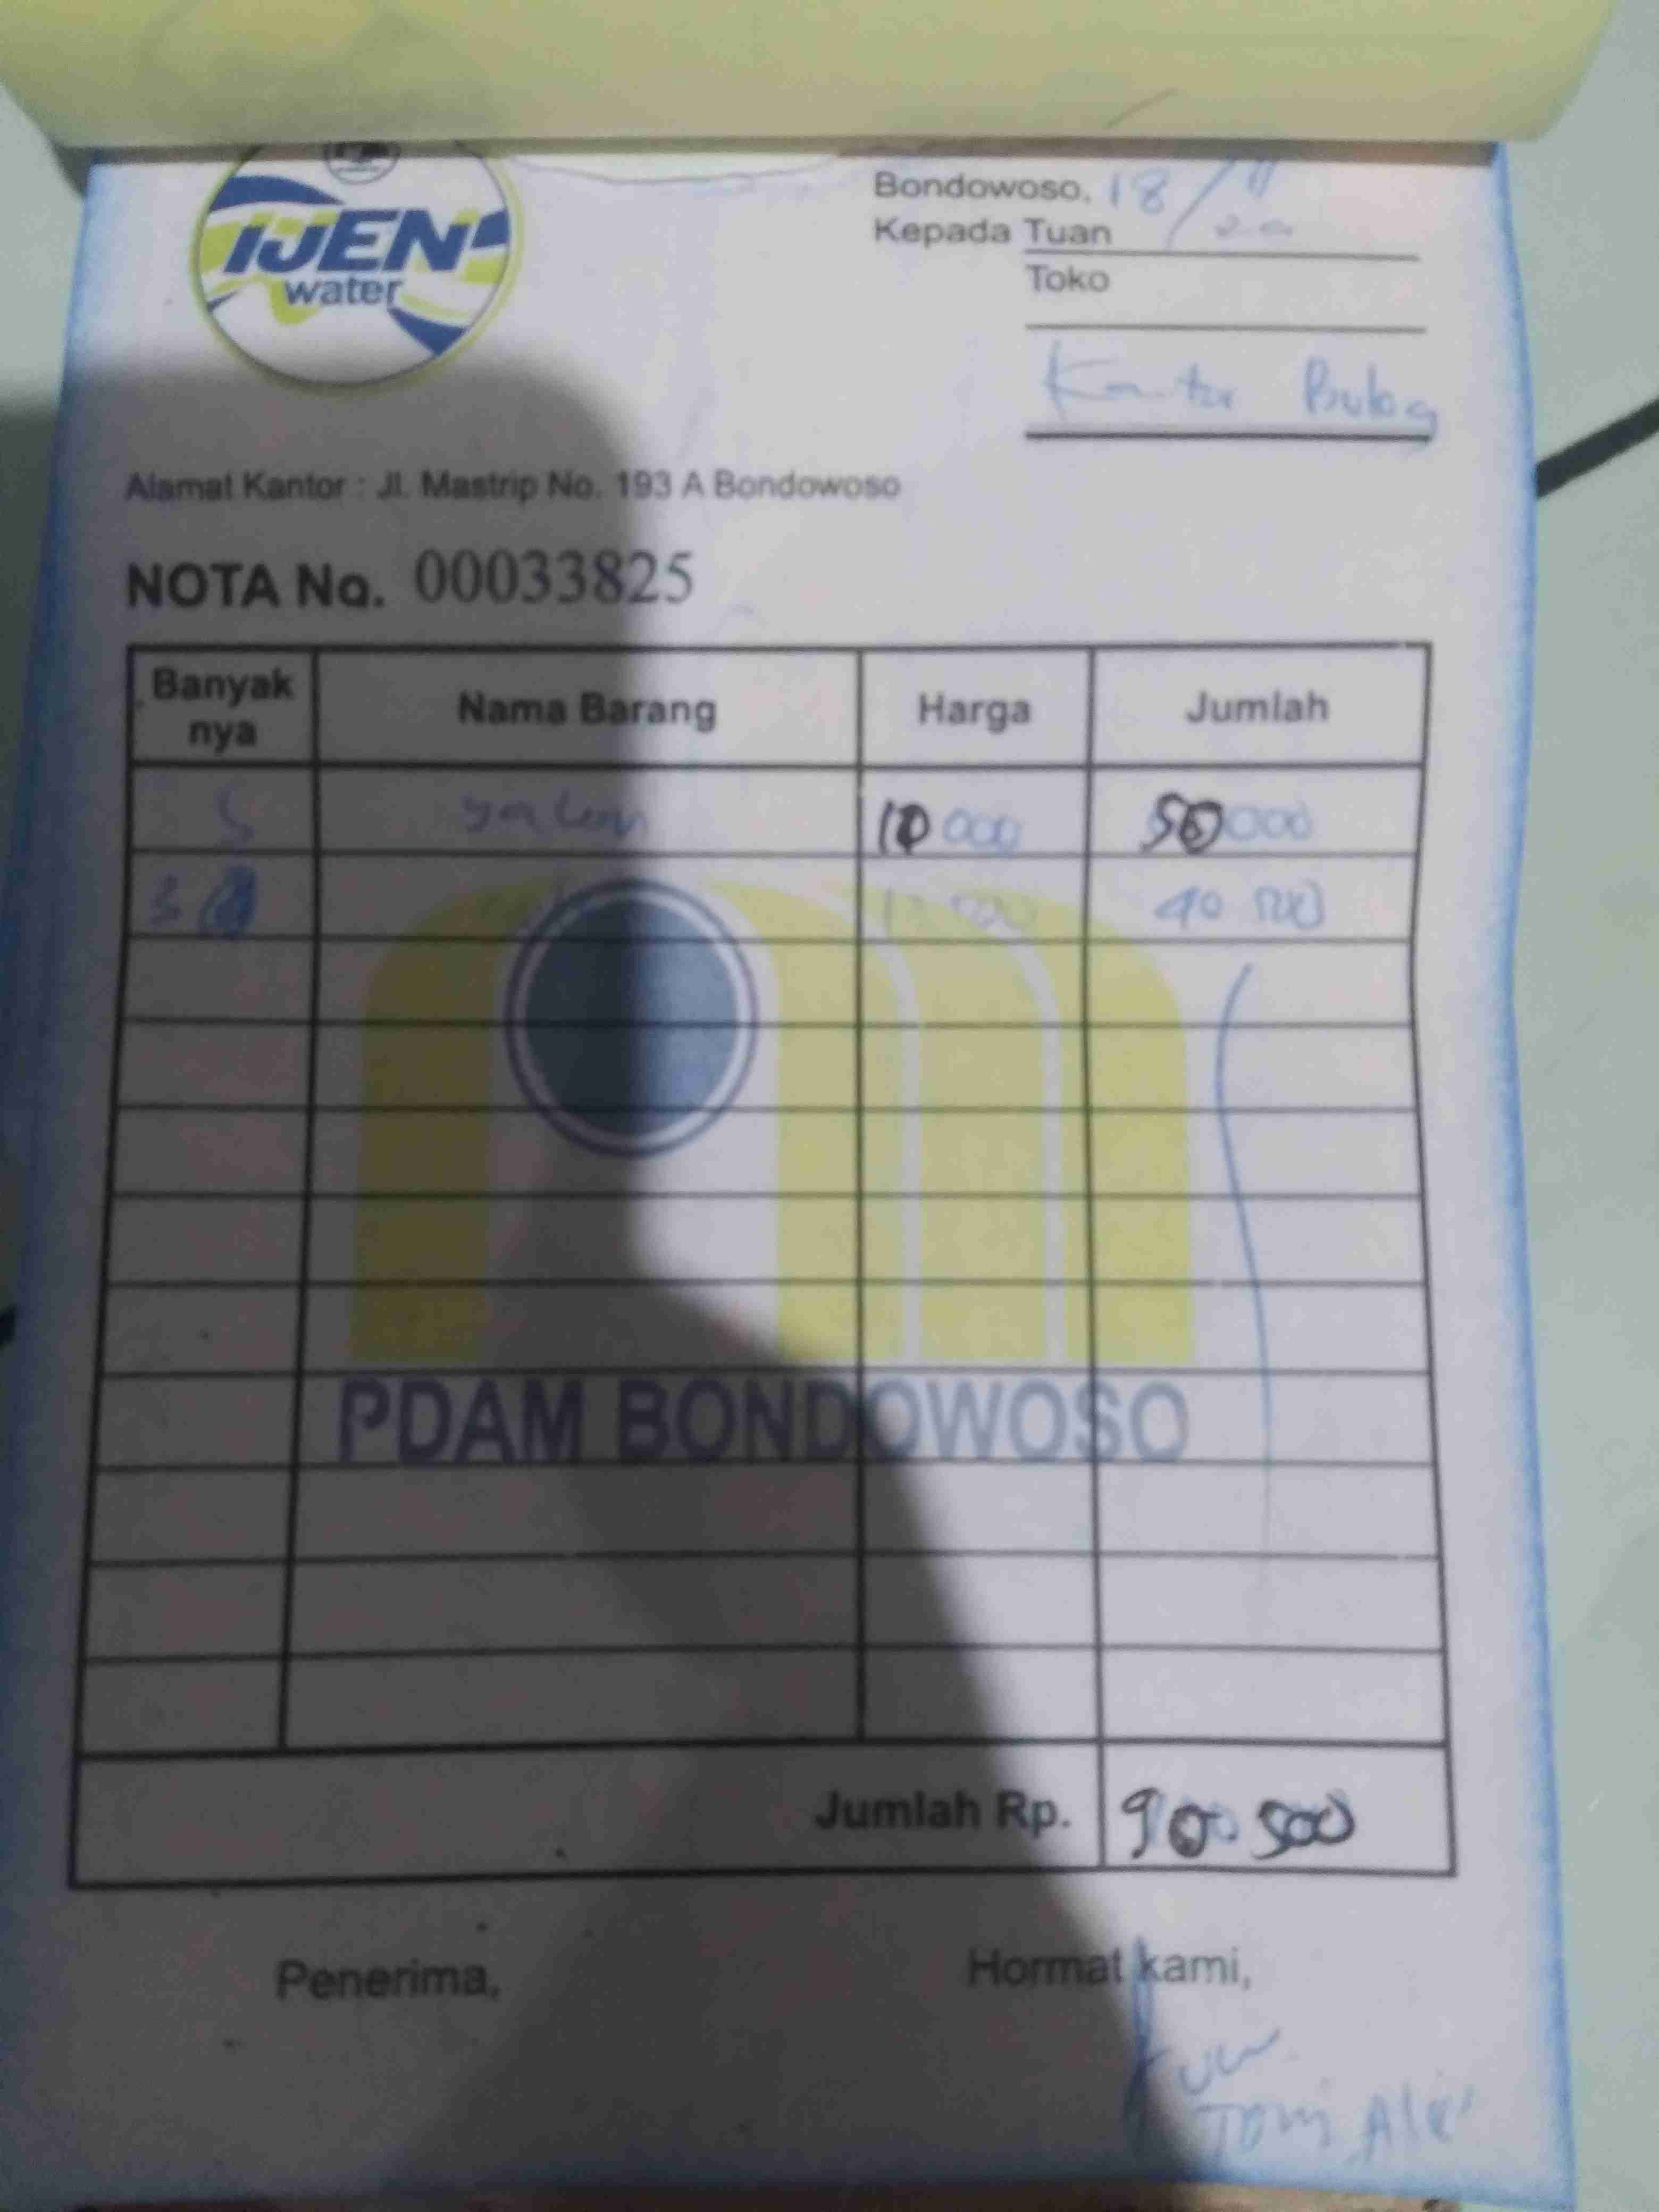 IJEN
water
Bondowoso, 18/11
Kepada Tuan
Toko
Kantor Bulog
Alamat Kantor : Jl. Mastrip No. 193 A Bondowoso
NOTA No. 00033825
Banyak nya Nama Barang Harga Jumlah
5 galon 10 000 50 000
3 40 500
PDAM BONDOWOSO
Jumlah Rp. 90.500
Penerima, Hormat kami,